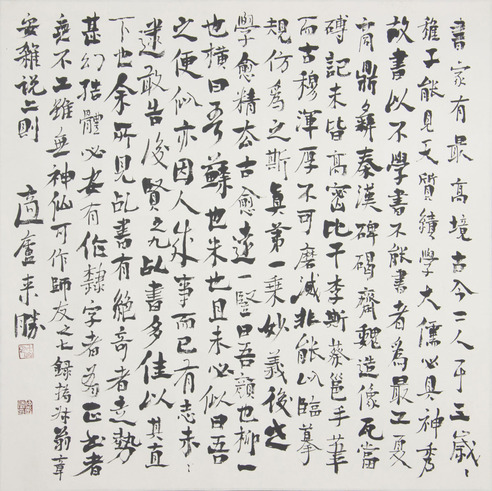 書家有最高境古今二人耳三歲〻
稚子能見天質績學大儒必具神秀
故書以不學書不能書者為最工夏
商鼎彝秦漢碑碣齊魏造像瓦當
磚記未皆高密比干李斯蔡邕手筆
而古穆渾厚不可磨滅非能以臨摹
規仿為之斯真第一乘妙義後之
學愈精去古愈遠一豎曰吾顏也柳一
也橫曰吾蘇也米也且未必似曰吾
之便似亦因人成事而已有志未〻
迷敢告後賢凡乩書多佳以其直
下也余所見乩書有絕奇者走勢
甚幻結體必安有作隸字者若正書者
竟不工雖無神仙可作師友也錄撝叔翁章
安雜說二則
適廬來勝